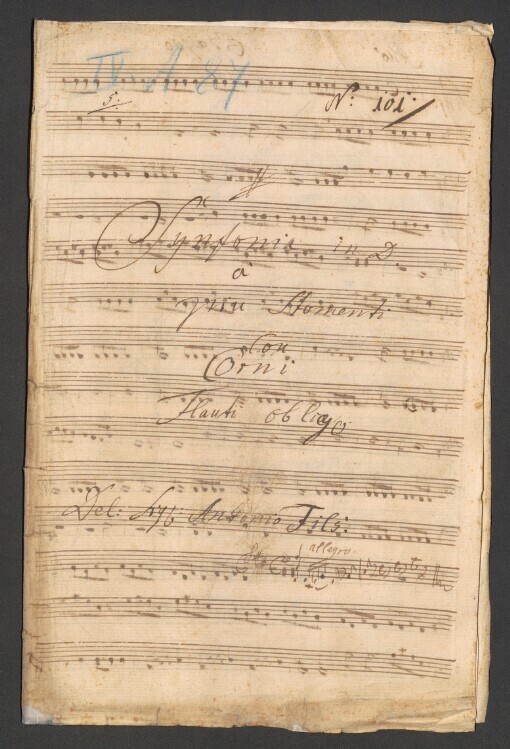 IV. A 87
5.
No: 101.
Synfonia in D.
à
piu Stomenti
Con
Corni
Flauti obligo
Del: Sig Antonio Filz
allegro